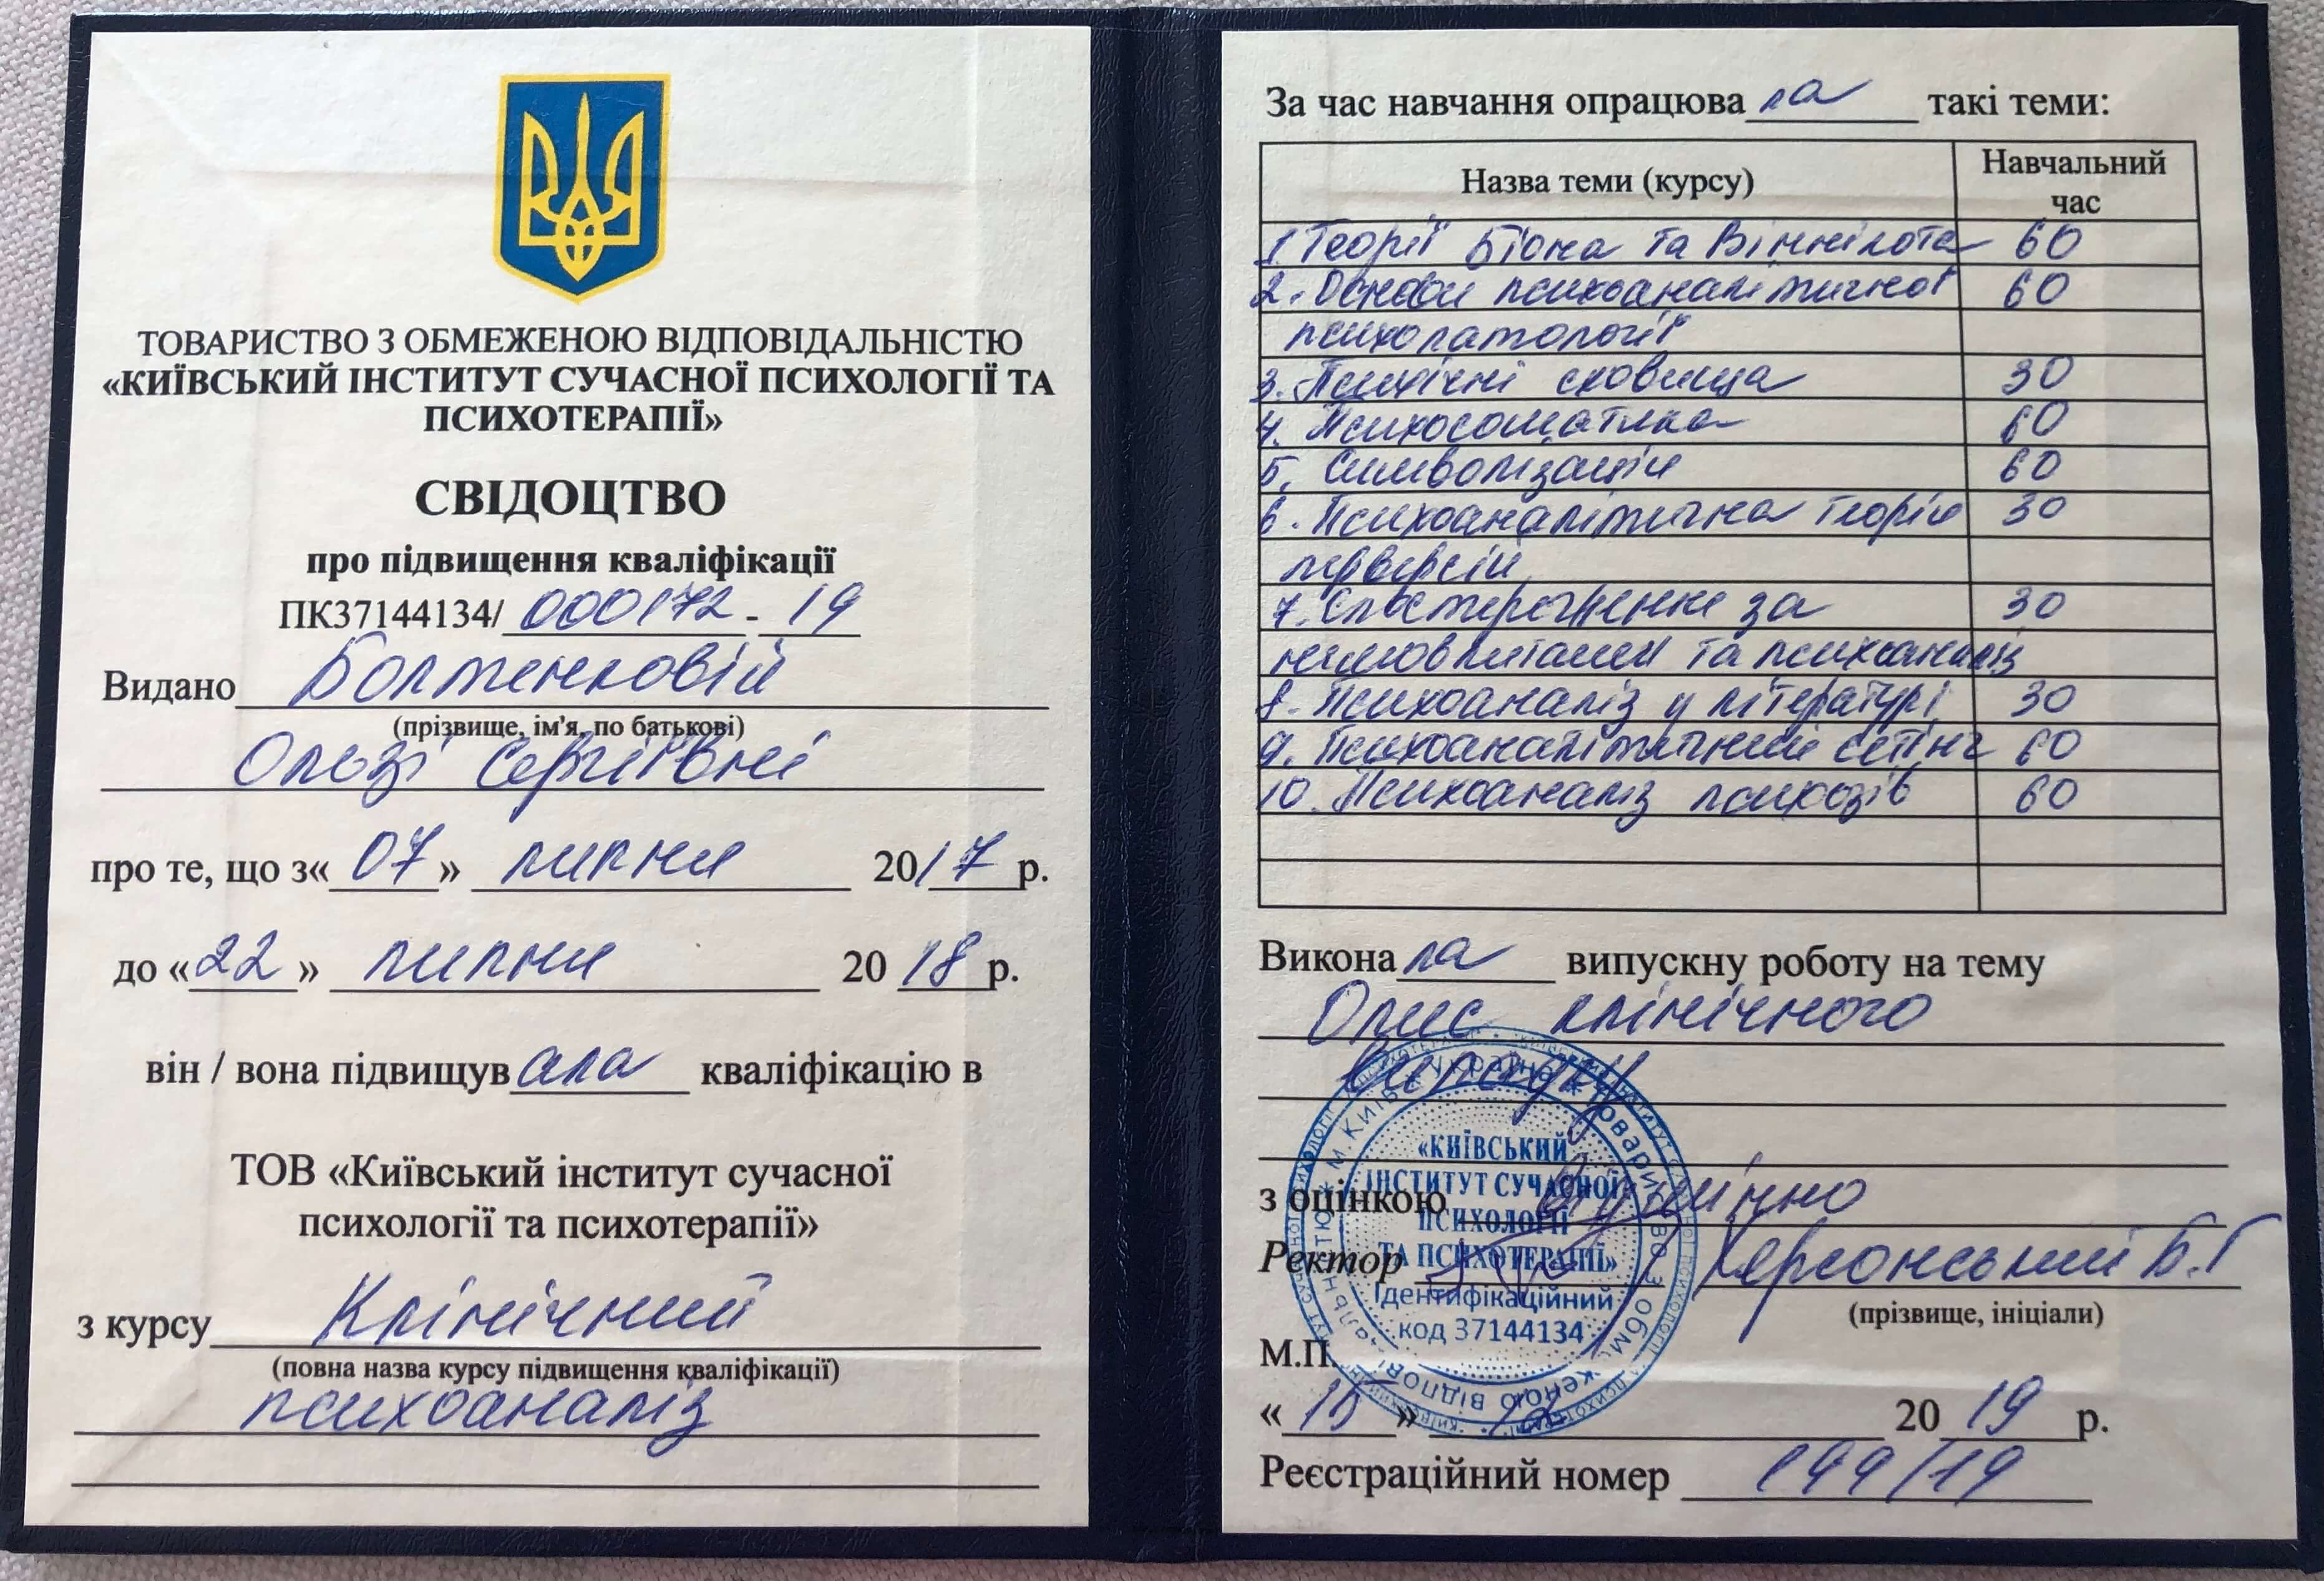 ТОВАРИСТВО З ОБМЕЖЕНОЮ ВІДПОВІДАЛЬНІСТЮ
«КИЇВСЬКИЙ ІНСТИТУТ СУЧАСНОЇ ПСИХОЛОГІЇ ТА
ПСИХОТЕРАПІЇ»
СВІДОЦТВО
про підвищення кваліфікації
ПК37144134/ 000172 - 19
Видано Болтенковій
(прізвище, ім'я, по батькові)
Ользі Сергіївні
про те, що з« 07 » липня 2017 р.
до «22» липня 20 18 р.
він / вона підвищувала кваліфікацію в
ТОВ «Київський інститут сучасної
психології та психотерапії»
з курсу Клінічний
(повна назва курсу підвищення кваліфікації)
психоаналіз
За час навчання опрацювала такі теми:
Назва теми (курсу) Навчальний час
1 Теорії Біона та Віннікота 60
2. Основи психоаналітичної 60
психопатології
3. Психічні сховища 30
4. Психосоматика 60
5. Символізація 60
6. Психоаналітична теорія 30
перверсій
7. Спостереження за 30
немовлятами та психоаналіз
8. Психоаналіз у літературі 30
9. Психоаналітичний сетінг 60
10. Психоаналіз психозів 60
Виконала випускну роботу на тему
Опис клінічного
випадку
з оцінкою відмінно
Ректор Херсонський Б.Г
(прізвище, ініціали)
М.П.
«КИЇВСЬКИЙ
ІНСТИТУТ СУЧАСНОЇ
ПСИХОЛОГІЇ
ТА ПСИХОТЕРАПІЇ»
Ідентифікаційний
код 37144134
« 15 » 12 20 19 р.
Реєстраційний номер 199/19